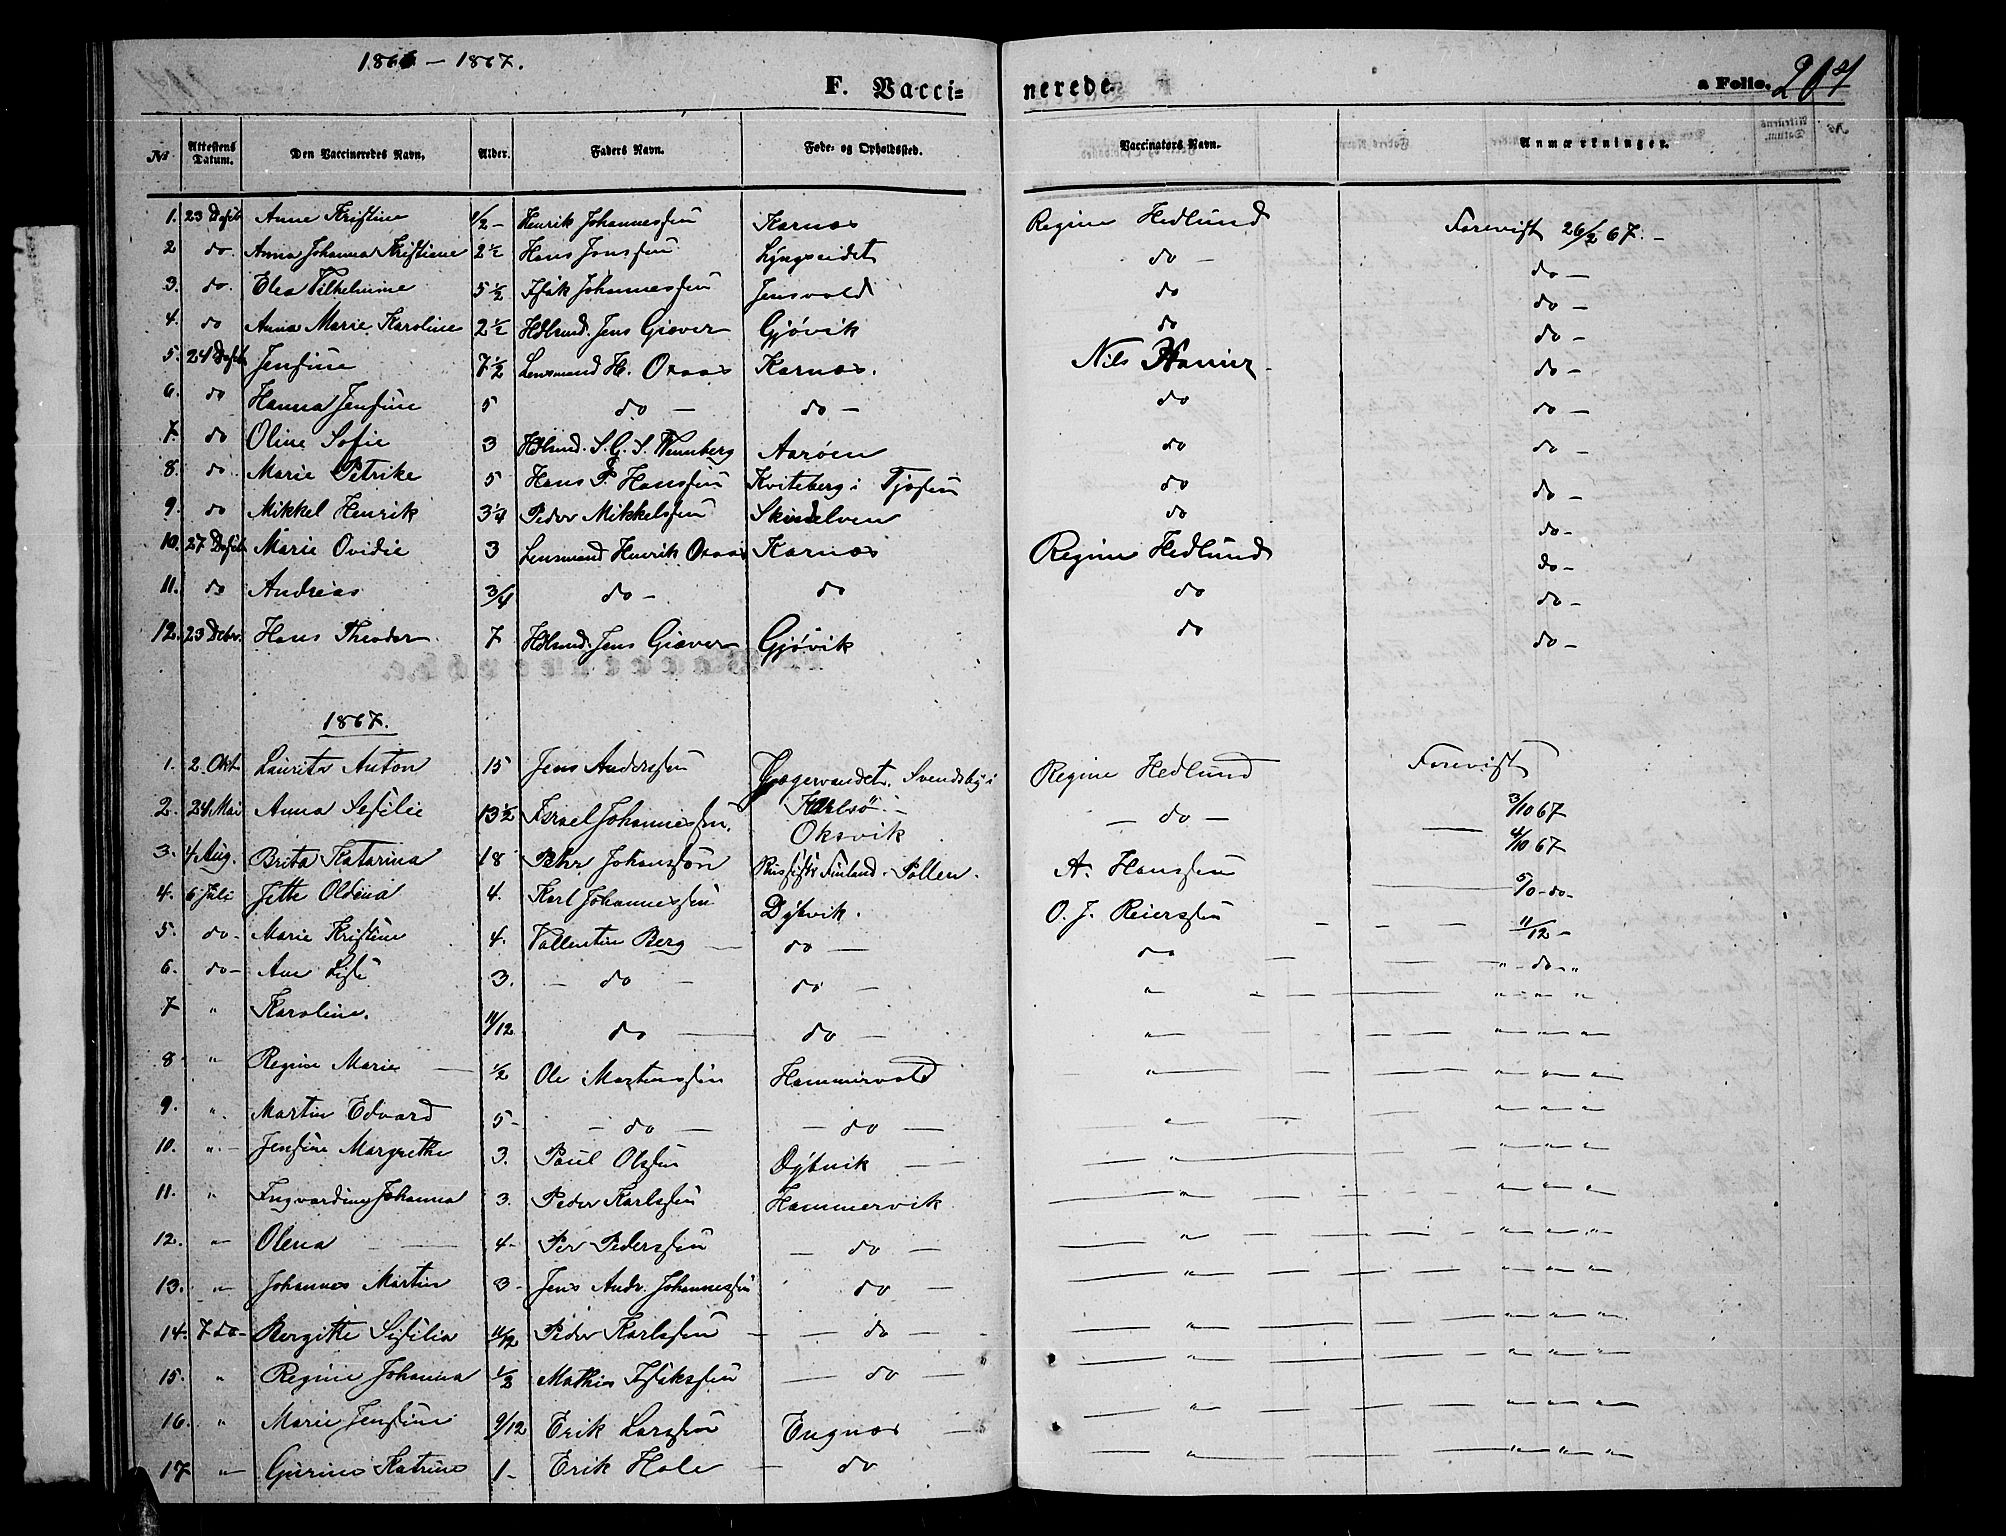 1866 – 1867.
F. Vaccinerede
a Folio. 204
No Attestens Datum. Den Vaccineredes Navn. Alder. Faders Navn. Føde- og Opholdssted. Vaccinators Navn. Anmærkninger.
1. 23 Anne Kristine 1/2 - Henrik Johannessen Karnæs Regine Hedlund Forevist 26/2 67. -
2 do. Anna Johanna Kristiane 2 1/2 Hans Jenssen Lyngseidet do - do -
3. do. Elea Vilhelmine 5 1/2 Isak Johannessen Jensvold do do -
4. do Anna Marie Karoline 2 1/2 Hdlsmd. Jens Giæver Gjøvik do do -
5. 24 Jensine 7 1/2 Lensmand H. Oxaas Karnæs. Nils do -
6. do Hanna Jensine 5 do - do - do do -
7. do Oline Sofie 3 Hdlsmd. S. G. S. Wennberg Aarøen do do -
8. do. Marie Petrike 5 Hans P. Hanssen Kviteberg i do do -
9. do Mikkel Henrik 3 1/4 Peder Mikkelsen Skindelven do do -
10. 27 Marie Ovidie 3 Lensmand Henrik Oxaas Karnæs Regine Hedlund do -
11. do Andreas 3/4 do - do do do -
12. 23 Debr. Hans Theodor 7 Hdlsmd. Jens Giæver Gjøvik do do -
1867.
1. 2. Okt. Laurits Anton 15 Jens Anderssen Jægervandet. Svendsby i Karlsö - Regine Hedlund Forevist 3/10 67
2. 24 Mai Anna Sefilie 13 1/2 Israel Johannessen. Oksvik - do - 4/10 67
3. 4 Aug. Brita Katarina 18 Pehr Johansson Finland. Pollen. A. Hanssen 5/10 - do -
4. 6 Juli Jette Oldina 4. Karl Johannessen Dybvik. O. J. Reierssen 11/12 -
5. do - Marie Kristine 4. Vallentin Berg do - do " - do - "
6. do - Ane 3. - do - do - " " " "
7 " Karoline. 11/12 do do - " " " "
8 - " Regine Marie 1/2 Ole Mortenssen Hammervold " " " "
9. " Martin Edvard 5 - - do - - do - " " " "
10. " - Jensine Margrethe 3. Paul Olssen Dybvik " " " "
11. " Ingvardine Johanna 3. Peder Karlssen Hammervik " " " "
12. " Olena 4 - Per Pederssen - do - " " " "
13. " Johannes Martin 3 - Jens Andr. Johannessen do - " " " "
14. 7 do - Bergitte Sefilia 11/12 Peder Karlssen - do - " " " "
15. " Regine Johanna 1/2 Mathis Isakssen - do - " " " "
16. " Marie Jensine 9/12 Erik Larssen Engnæs " " " "
17 " Gurine Katrine 1 - Erik Hole - do " " " "